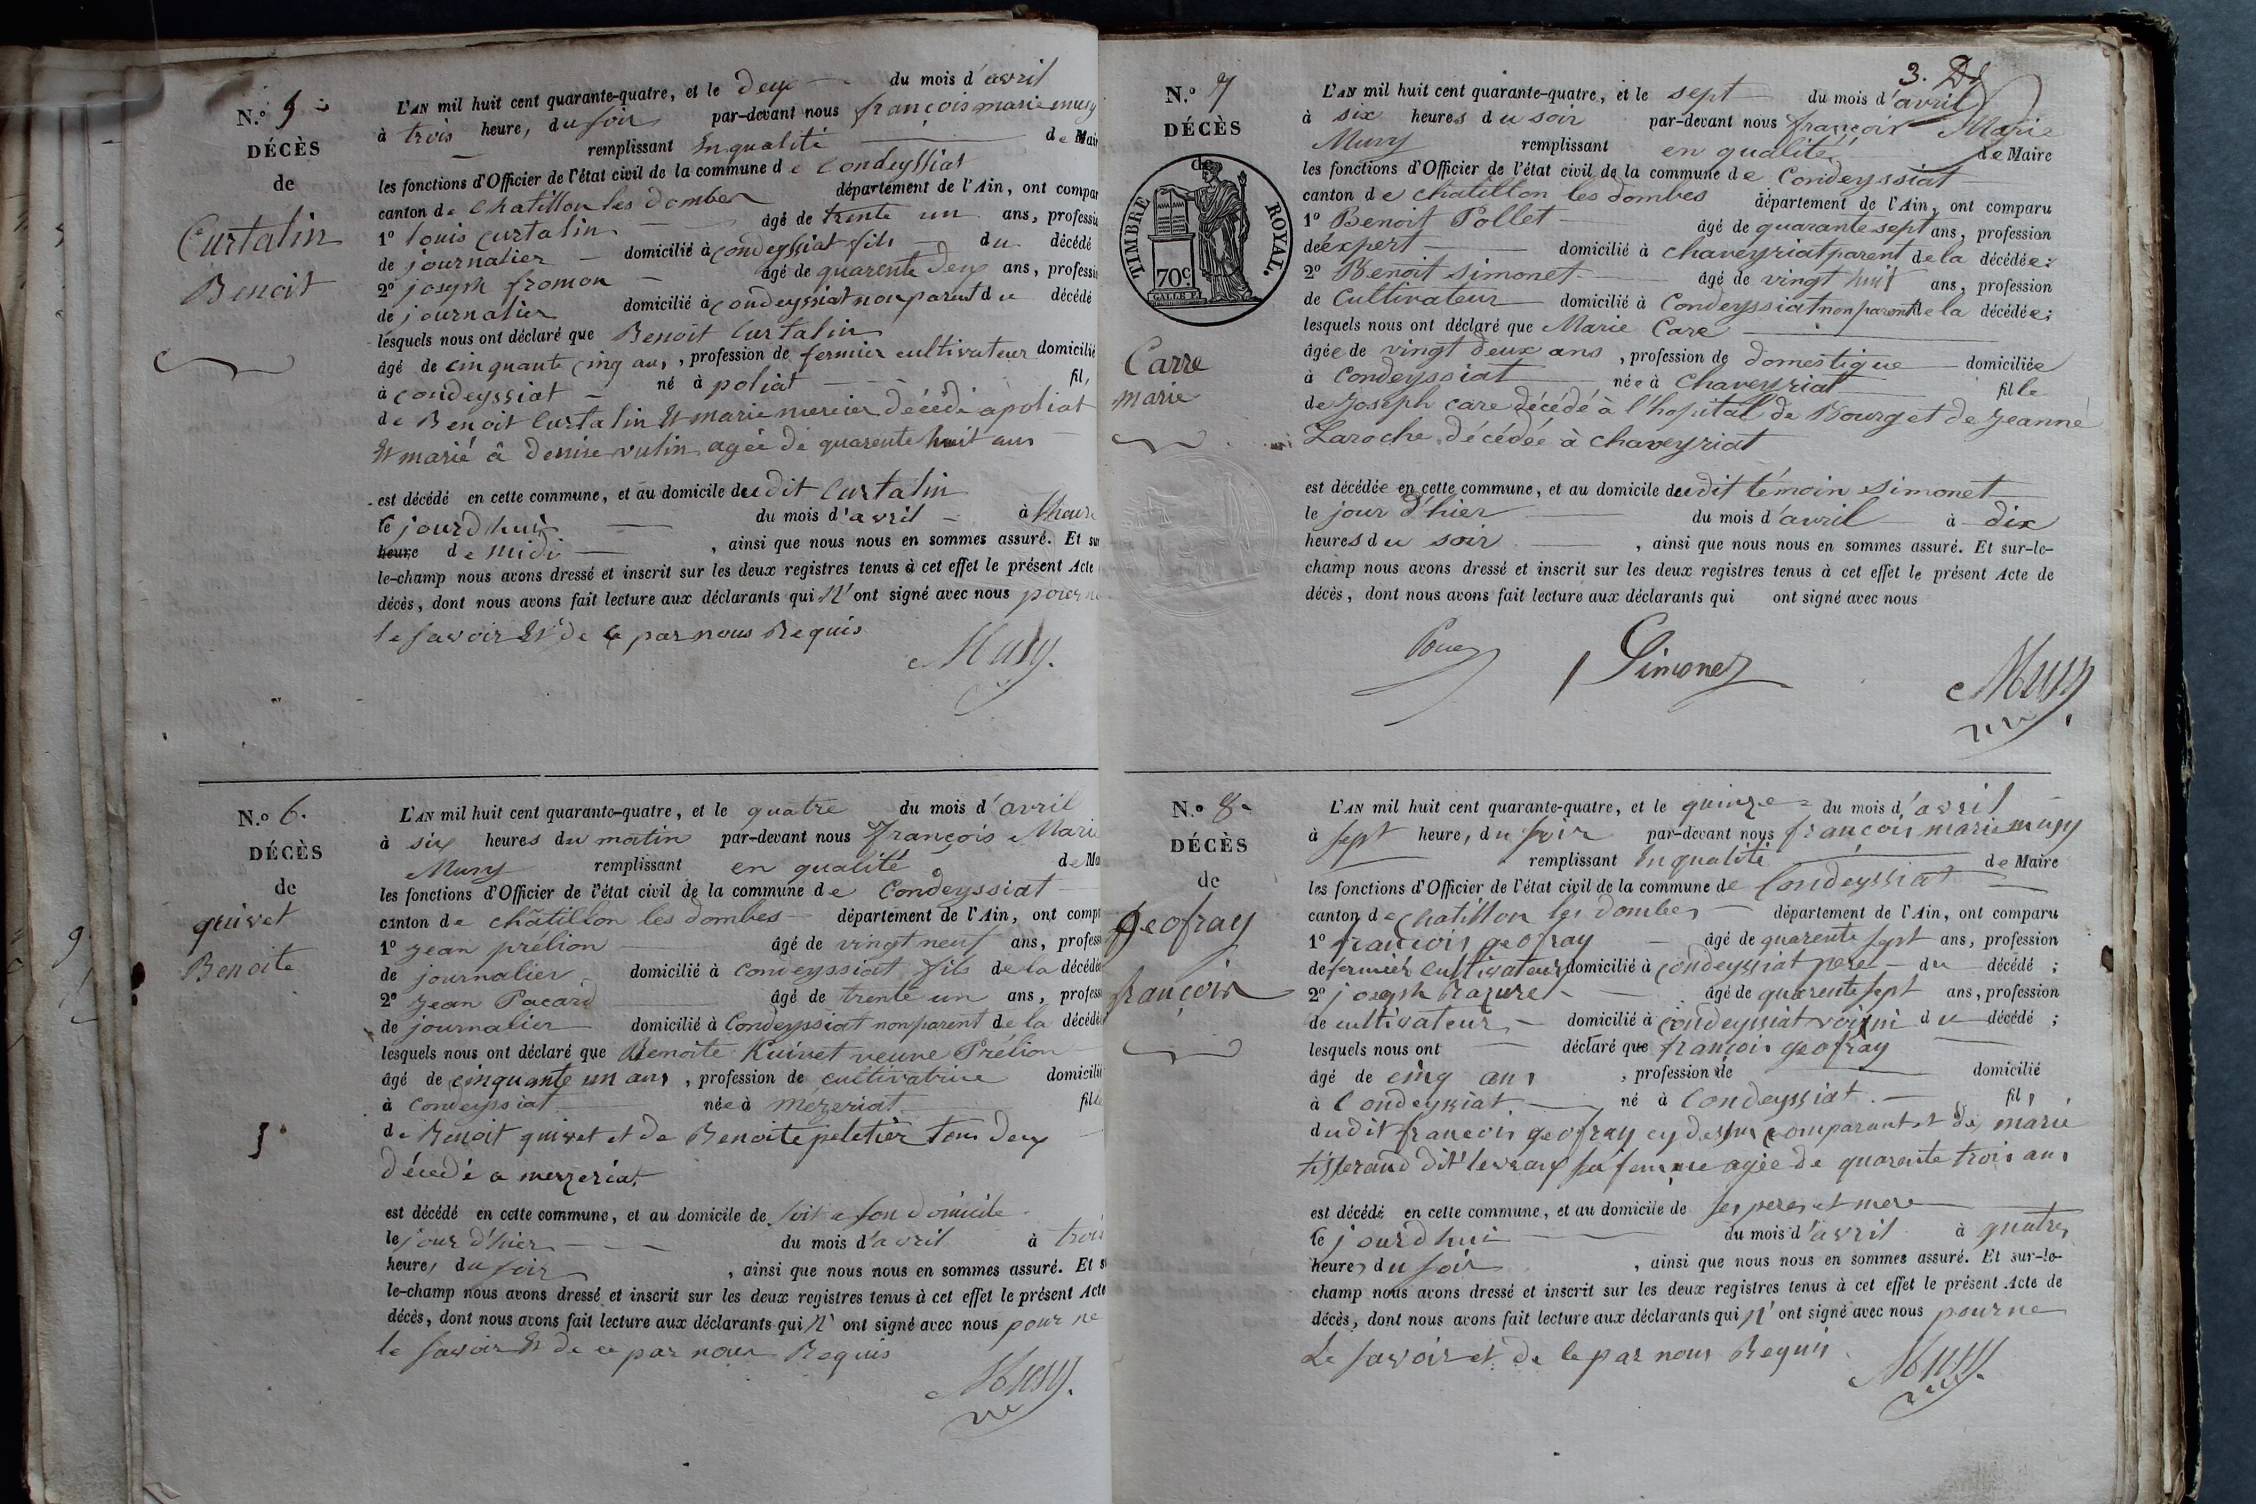 N.o 5
DÉCÈS
de
Curtalin
Benoit
L'AN mil huit cent quarante-quatre, et le deux du mois d'avril
à trois heure, du soir par-devant nous françois marie musy
remplissant En qualité de Mair
les fonctions d'Officier de l'état civil de la commune de Condeyssiat
canton de Chatillon les dombes département de l'Ain, ont compar
1o louis curtalin âgé de trente un ans, professio
de journalier domicilié à condeyssiat fils du décédé
2o joseph fromon âgé de quarente deux ans, professio
de journalier domicilié à condeyssiat non parent du décédé
lesquels nous ont déclaré que Benoit Curtalin
âgé de cinquante cinq ans, profession de fermier cultivateur domicilié
à condeyssiat né à poliat fils
de Benoit Curtalin Et marie mercier décédé a poliat
Et marié â denise vulin agée de quarente huit ans
est décédé en cette commune, et au domicile dudit Curtalin
le jourdhui du mois d'avril à lheure
heure de midi, ainsi que nous nous en sommes assuré. Et sur
le-champ nous avons dressé et inscrit sur les deux registres tenus à cet effet le présent Acte
décès, dont nous avons fait lecture aux déclarants qui n'ont signé avec nous pour ne
le savoir Et de ce par nous Requis
Musy
N.o 6.
DÉCÈS
de
quivet
Benoite
L'AN mil huit cent quarante-quatre, et le quatre du mois d'avril
à six heures du matin par-devant nous françois Marie
Musy remplissant en qualité de Ma
les fonctions d'Officier de l'état civil de la commune de Condeyssiat
canton de châtillon les dombes département de l'Ain, ont comp
1o jean prélion âgé de vingt neuf ans, profess
de journalier domicilié à condeyssiat fils de la décédée
2o jean Pacard âgé de trente un ans, profess
de journalier domicilié à Condeyssiat non parent de la décédée
lesquels nous ont déclaré que Benoite Kuivet veuve Prélion
âgé de cinquante un ans, profession de cultivatrice domicilié
à condeyssiat née à mezeriat fille
de Benoit quivet et de Benoite peletier tous deux
décedé a mezzeriat
est décédé en cette commune, et au domicile de soit a son domicile
le jour d'hier du mois d'avril à trois
heures du soir, ainsi que nous nous en sommes assuré. Et s
le-champ nous avons dressé et inscrit sur les deux registres tenus à cet effet le présent Acte
décès, dont nous avons fait lecture aux déclarants qui n'ont signé avec nous pour ne
le savoir Et de ce par nous Requis
Musy
3.
N.o 7
DÉCÈS
de
TIMBRE ROYAL.
70c.
Carre
marie
L'AN mil huit cent quarante-quatre, et le sept du mois d'avril
à six heures du soir par-devant nous françois Marie
Musy remplissant en qualité de Maire
les fonctions d'Officier de l'état civil de la commune de Condeyssiat
canton de châtillon les dombes département de l'Ain, ont comparu
1o Benoit Pollet âgé de quarante sept ans, profession
de éxpert domicilié à chaveyriat parent de la décédée;
2o Benoit simonet âgé de vingt huit ans, profession
de Cultivateur domicilié à Condeyssiat non parent de la décédée;
lesquels nous ont déclaré que Marie Care
âgée de vingt deux ans, profession de domestique domiciliée
à Condeyssiat née à Chaveyriat fille
de Joseph care décédé à l'hopital de Bourg et de jeanne
Laroche décédée à chaveyriat
est décédée en cette commune, et au domicile dudit témoin simonet
le jour d'hier du mois d'avril à dix
heures du soir, ainsi que nous nous en sommes assuré. Et sur-le-
champ nous avons dressé et inscrit sur les deux registres tenus à cet effet le présent Acte de
décès, dont nous avons fait lecture aux déclarants qui ont signé avec nous
Simonet
Musy
N.o 8
DÉCÈS
de
geofray
françois
L'AN mil huit cent quarante-quatre, et le quinze du mois d'avril
à sept heure, du soir par-devant nous françois marie musy
remplissant En qualité de Maire
les fonctions d'Officier de l'état civil de la commune de Condeyssiat
canton de Chatillon les dombes département de l'Ain, ont comparu
1o françois geofray âgé de quarente sept ans, profession
de fermier cultivateur domicilié à condeyssiat pere du décédé;
2o joseph Razurel âgé de quarente sept ans, profession
de cultivateur domicilié à condeyssiat voisin du décédé;
lesquels nous ont déclaré que françois geofray
âgé de cinq ans, profession de domicilié
à Condeyssiat né à Condeyssiat fils
dudit françois geofray cy dessus comparant et de marie
tisserand dit levraux sa femme agée de quarente trois ans
est décédé en cette commune, et au domicile de ses peres et mere
le jourdhui du mois d'avril à quatre
heures du soir, ainsi que nous nous en sommes assuré. Et sur-le-
champ nous avons dressé et inscrit sur les deux registres tenus à cet effet le présent Acte de
décès, dont nous avons fait lecture aux déclarants qui n'ont signé avec nous pour ne
Le savoir et de ce par nous Requis
Musy